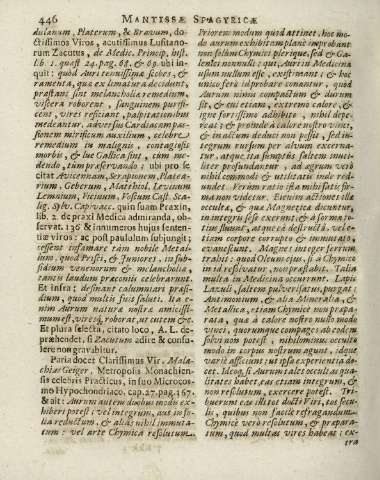 446 MANTISSÆ SPAGYRICÆ
dulanum, Platerum, & Bravum, do-
ctissimos Viros, acutissimus Lusitano-
rum Zacutus, de Medic. Princip. inst.
lib. 1. quæst 24. pag. 68. & 69. ubi in-
quit: quòd Auri tenuissima scobes, &
ramenta, quæ ex limatura decidunt,
præstant sint melancholiæ remedium,
viscera roborent, sanguinem purifi-
cent, vires reficiant, palpitationibus
medeantur, adversùs Cardiacam pas-
sionem mirificum auxilium, celebre
remedium in malignis, contagiosis
morbis, & lue Gallica sint, cum me-
dendo, tum præservando: ubi pro se
citat Avicennam, Serapionem, Platea-
rium, Geberum, Matthiol. Levinum
Lemnium, Vicinum, Fostum Cast. Sca-
lig. Sylv. Capivacc. quin suam Praxin
lib. 2. de praxi Medica admiranda, ob-
servat. 136 & innumeros hujus senten-
tiæ viros: ac post paulalum subjungit;
cessent infamare tàm nobile Metal-
lum, quod Prisci, & Juniores, in sub-
sidium venenorum & melancholiæ,
tantis laudum præconiis celebrarunt.
Et infra: desinant calumniari præsi-
dium, quod multis fuit saluti. Ita e-
nim Aurum naturæ nostræ amicissi-
mum est, vires q, roborat, ut autem &c.
Et plura selecta, citato loco, A. L. de-
præhendet, si Zacutum adire & consu-
lere non gravabitur.
Paria docet Clarissimus Vir. Mala-
chias Geiger, Metropolis Monachien-
sis celebris Practicus, in suo Microcos-
mo Hypochondriaco, cap. 27. pag. 167.
& ait: Aurum autem duobus modis ex-
hiberi potest: vel integrum, aut in so-
lia reductum, & aliàs nihil immuta-
tum: vel arte Chymica resolutum.
Priorem modum quòd attinet, hoc mo-
do aurum exhibitum planè improbant
non solùm Chymici plerique, sed & Ga-
lenici nonnulli: qui, Auri in Medicina
usum nullum esse, existimant; & hoc
unico ferè id probare conantur, quòd
Aurum nimis compactum & aurum
sit, & cui etiam, extremo calore, &
igne fortissimo adhibito, nihil depe-
reat; & proinde à calore nostro vinci,
& in actum deduci non possit, sed in-
tegrum rursum per alvum excerna-
tur, atque ita sumptus saltem inuti-
liter profundantur, ad ægrum verò
nihil commodi & utilitatis inde red-
undet. Verùm ratio ista mihi satis fir-
ma non videtur. Etenim actiones illæ
occultæ, & quæ Magneticæ dicuntur,
in integris sese exerunt, & à forma to-
tius fluunt, atque eâ destructâ, vel e-
tiam corpore corrupto & immutato,
evanescunt. Magnes integer ferrum
trahit: quod Oleum ejus, si à Chymico
in id resolvatur, non præstabit. Talia
multa in Medicina occurrunt. Lapis
Lazuli, saltem pulverisatus, purgat:
Antimonium, & alia Mineralia, &
Metallica, etiam Chymicè non præpa-
rata, quæ à calore nostro nullo modo
vinci, quorumque compages ab eodem
solvi non potest, nihilominus occulto
modo in corpus nostrum agunt, idque
variè afficiunt: ut ipsa experientia do-
cet. Ideoq, si Aurum tales occultas qua-
litates habet, eas etiam integrum, &
non resolutum, exercere potest. Tri-
buerunt eas illi tot docti Viri, tot secu-
lis, quibus non facilè refragandum.
Chymicè verò resolutum, & præpara-
tum, quod multas vires habeat: ex-
tra